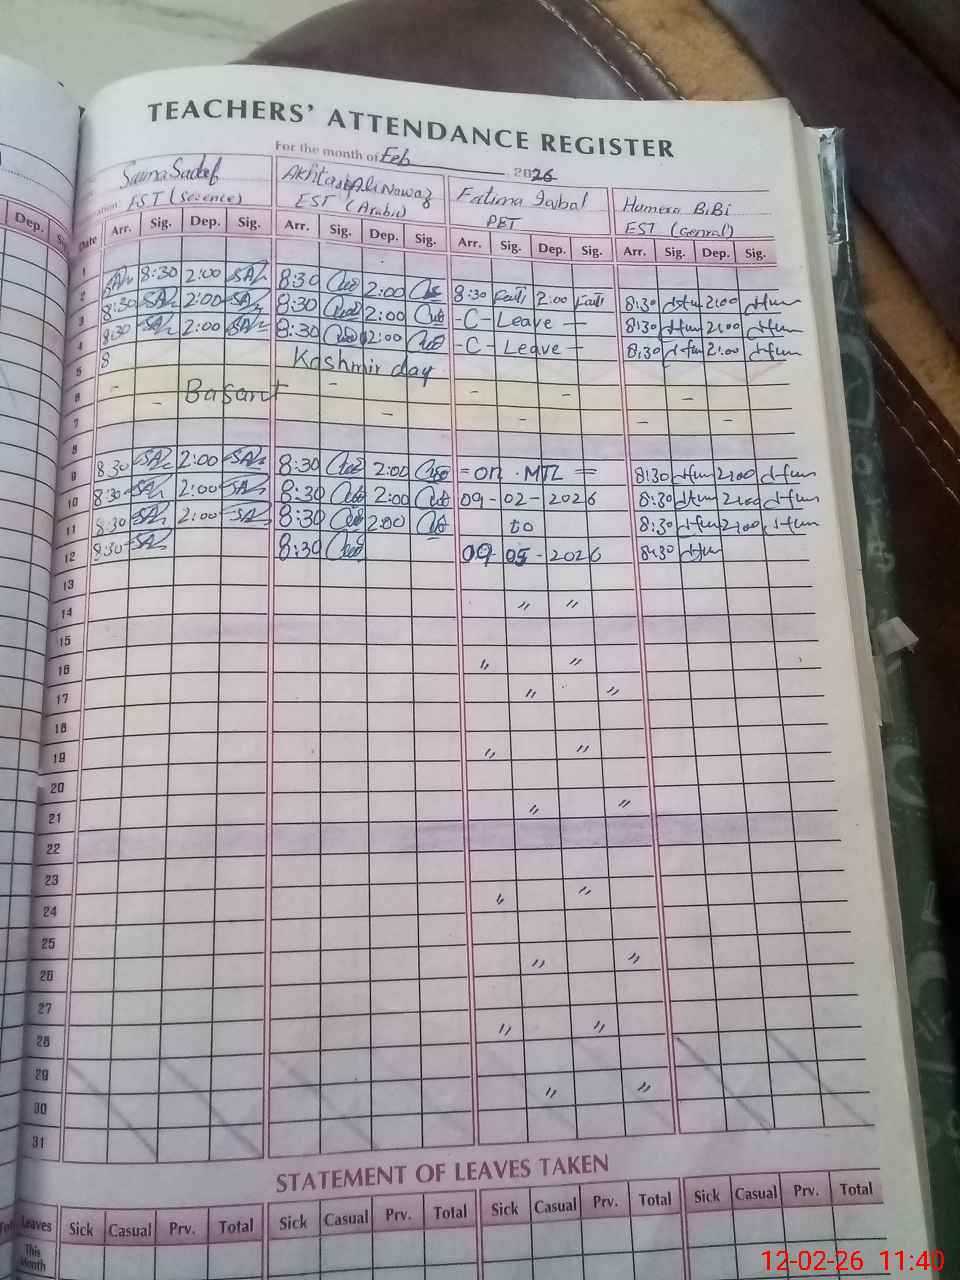 TEACHERS' ATTENDANCE REGISTER
For the month of Feb 2026
Sauna Sadaf Akhtar Ali Nawaz Fatima Iqbal Humera BiBi
EST (Science) EST (Arabic) PET EST (Genral)
Dep.
Date Arr. Sig. Dep. Sig. Arr. Sig. Dep. Sig. Arr. Sig. Dep. Sig. Arr. Sig. Dep. Sig.
1
2 8:30 2:00 8:30 2:00 8:30 2:00 8:30 2:00
3 8:30 2:00 8:30 2:00 -C- Leave - 8:30 2:00
4 8:30 2:00 8:30 2:00 -C- Leave - 8:30 2:00
5 8 Kashmir day
6 - Basant - - - -
7 - - - - -
8
9 8:30 2:00 8:30 2:00 = on MTL = 8:30 2:00
10 8:30 2:00 8:30 2:00 09-02-2026 8:30 2:00
11 8:30 2:00 8:30 2:00 to 8:30 2:00
12 8:30 8:30 09 05-2026 8:30
13
14 〃 〃
15
16 〃 〃
17 〃 〃
18
19 〃 〃
20
21 〃 〃
22
23
24 〃 〃
25
26 〃 〃
27
28 〃 〃
29
30 〃 〃
31
STATEMENT OF LEAVES TAKEN
Leaves Sick Casual Prv. Total Sick Casual Prv. Total Sick Casual Prv. Total Sick Casual Prv. Total
This Month
12-02-26 11:40